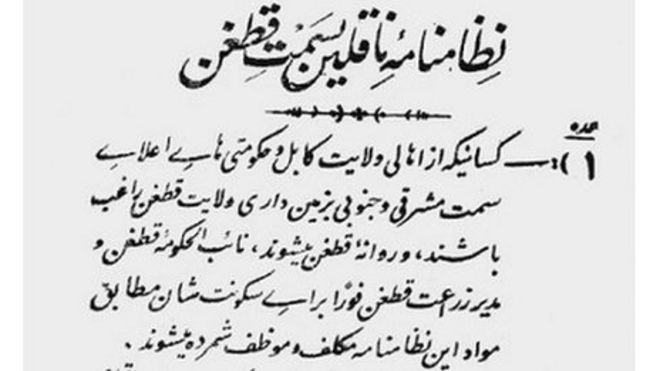 نظامنامهٔ ناقلین بسمت قطغن
عدد
(۱): — کسانیکه از اهالی ولایت کابل و حکومتی های اعلای
سمت مشرقی و جنوبی بزمین داری ولایت قطغن راغب
باشند، و روانهٔ قطغن میشوند، نائب الحکومهٔ قطغن و
مدیر زراعت قطغن فورًا برای سکونت شان مطابق
مواد این نظامنامه مکلف و موظف شمرده میشوند.